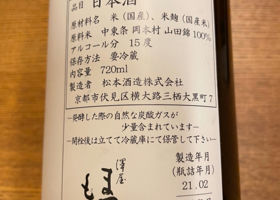 品目 日本酒
原材料名 米(国産)、米麹(国産米)
原料米 中東条 岡本村 山田錦100%
アルコール分 15度
保存方法 要冷蔵
内容量 720ml
製造者 松本酒造株式会社
京都市伏見区横大路三栖大黒町7
―発酵した際の自然な炭酸ガスが
少量含まれています―
―開栓後は立てて冷蔵庫にて保管して下さい―
製造年月
(瓶詰年月)
21.02
澤屋
まつも